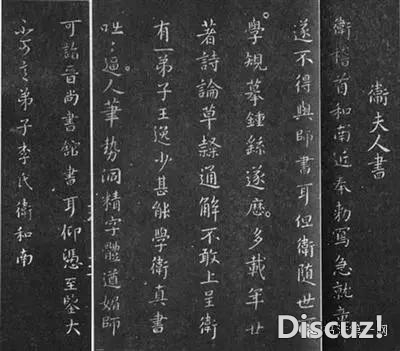 衛夫人書
衛稽首和南近奉勅寫急就章
遂不得與師書耳但衛隨世
學規摹鍾繇遂歷多載年廿
著詩論草隸通解不敢上呈衛
有一弟子王逸少甚能學衛真書
咄〃逼人筆勢洞精字體遒媚師
可詣晉尚書館書耳仰憑至鑒大
不可言弟子李氏衛和南
Discuz!